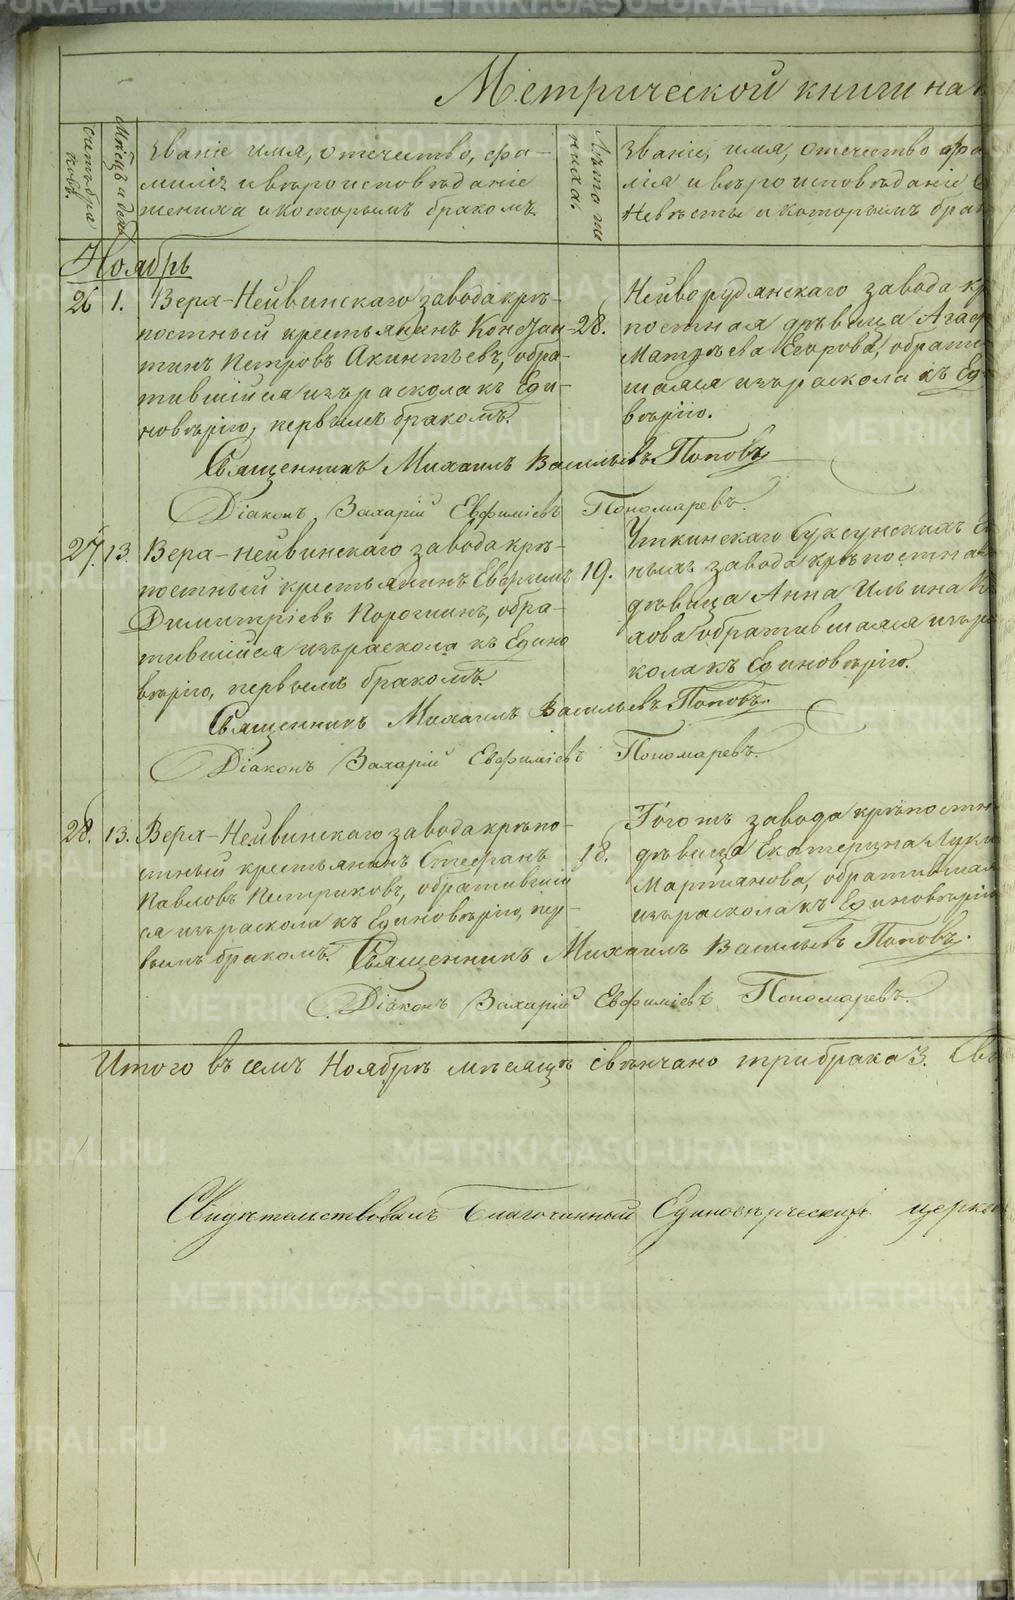 Метрической книги на
Счетъ бра
ковъ.
Мѣсяцъ и день
Званіе имя, отечество, фа-
милія и вѣроисповѣданіе
жениха и которымъ бракомъ.
Лѣта же
ниха.
Званіе, имя, отечество фа
лія и вѣроисповѣданіе
Невѣсты и которымъ бра
Ноябрь
26 1. Верх-Нейвинскаго завода крѣ-
постный крестьянинъ Констан-
тинъ Петровъ Акинтьевъ, обра-
тившійся изъ раскола къ Еди-
новѣрію, первымъ бракомъ.
28.
Нейворудянскаго завода кр
постная дѣвица Агаф
Матвѣева Егорова, обрати
шаяся изъ раскола къ Ед
вѣрію.
Священникъ Михаилъ Васильевъ Поповъ
Діаконъ Захарій Евфиміевъ Пономаревъ.
27. 13. Верх-Нейвинскаго завода крѣ-
постный крестьянинъ Евфимъ
Димитріевъ Порочкинъ, обра-
тившійся изъ раскола къ Едино
вѣрію, первымъ бракомъ.
19.
Уткинскаго Суксунскихъ
ныхъ завода крѣпостна
дѣвица Анна Ильина
лова обратившаяся изъ р
кола къ Единовѣрію.
Священникъ Михаилъ Васильевъ Поповъ.
Діаконъ Захарій Евфиміевъ Пономаревъ.
28. 13. Верх-Нейвинскаго завода крѣпо-
стный крестьянинъ Стефанъ
Павловъ Петриковъ, обратившій
ся изъ раскола къ Единовѣрію, пер-
вымъ бракомъ.
18.
Того жъ завода крѣпостн
дѣвица Екатерина Луки
Мартіанова, обратившая
изъ раскола къ Единовѣрію
Священникъ Михаилъ Васильевъ Поповъ.
Діаконъ Захарій Евфиміевъ Пономаревъ.
Итого въ семъ Ноябрѣ мѣсяцѣ свѣнчано три брака 3.
Свидѣтельствовалъ Благочинный Единовѣрческихъ церкв
METRIKI.GASO-URAL.RU